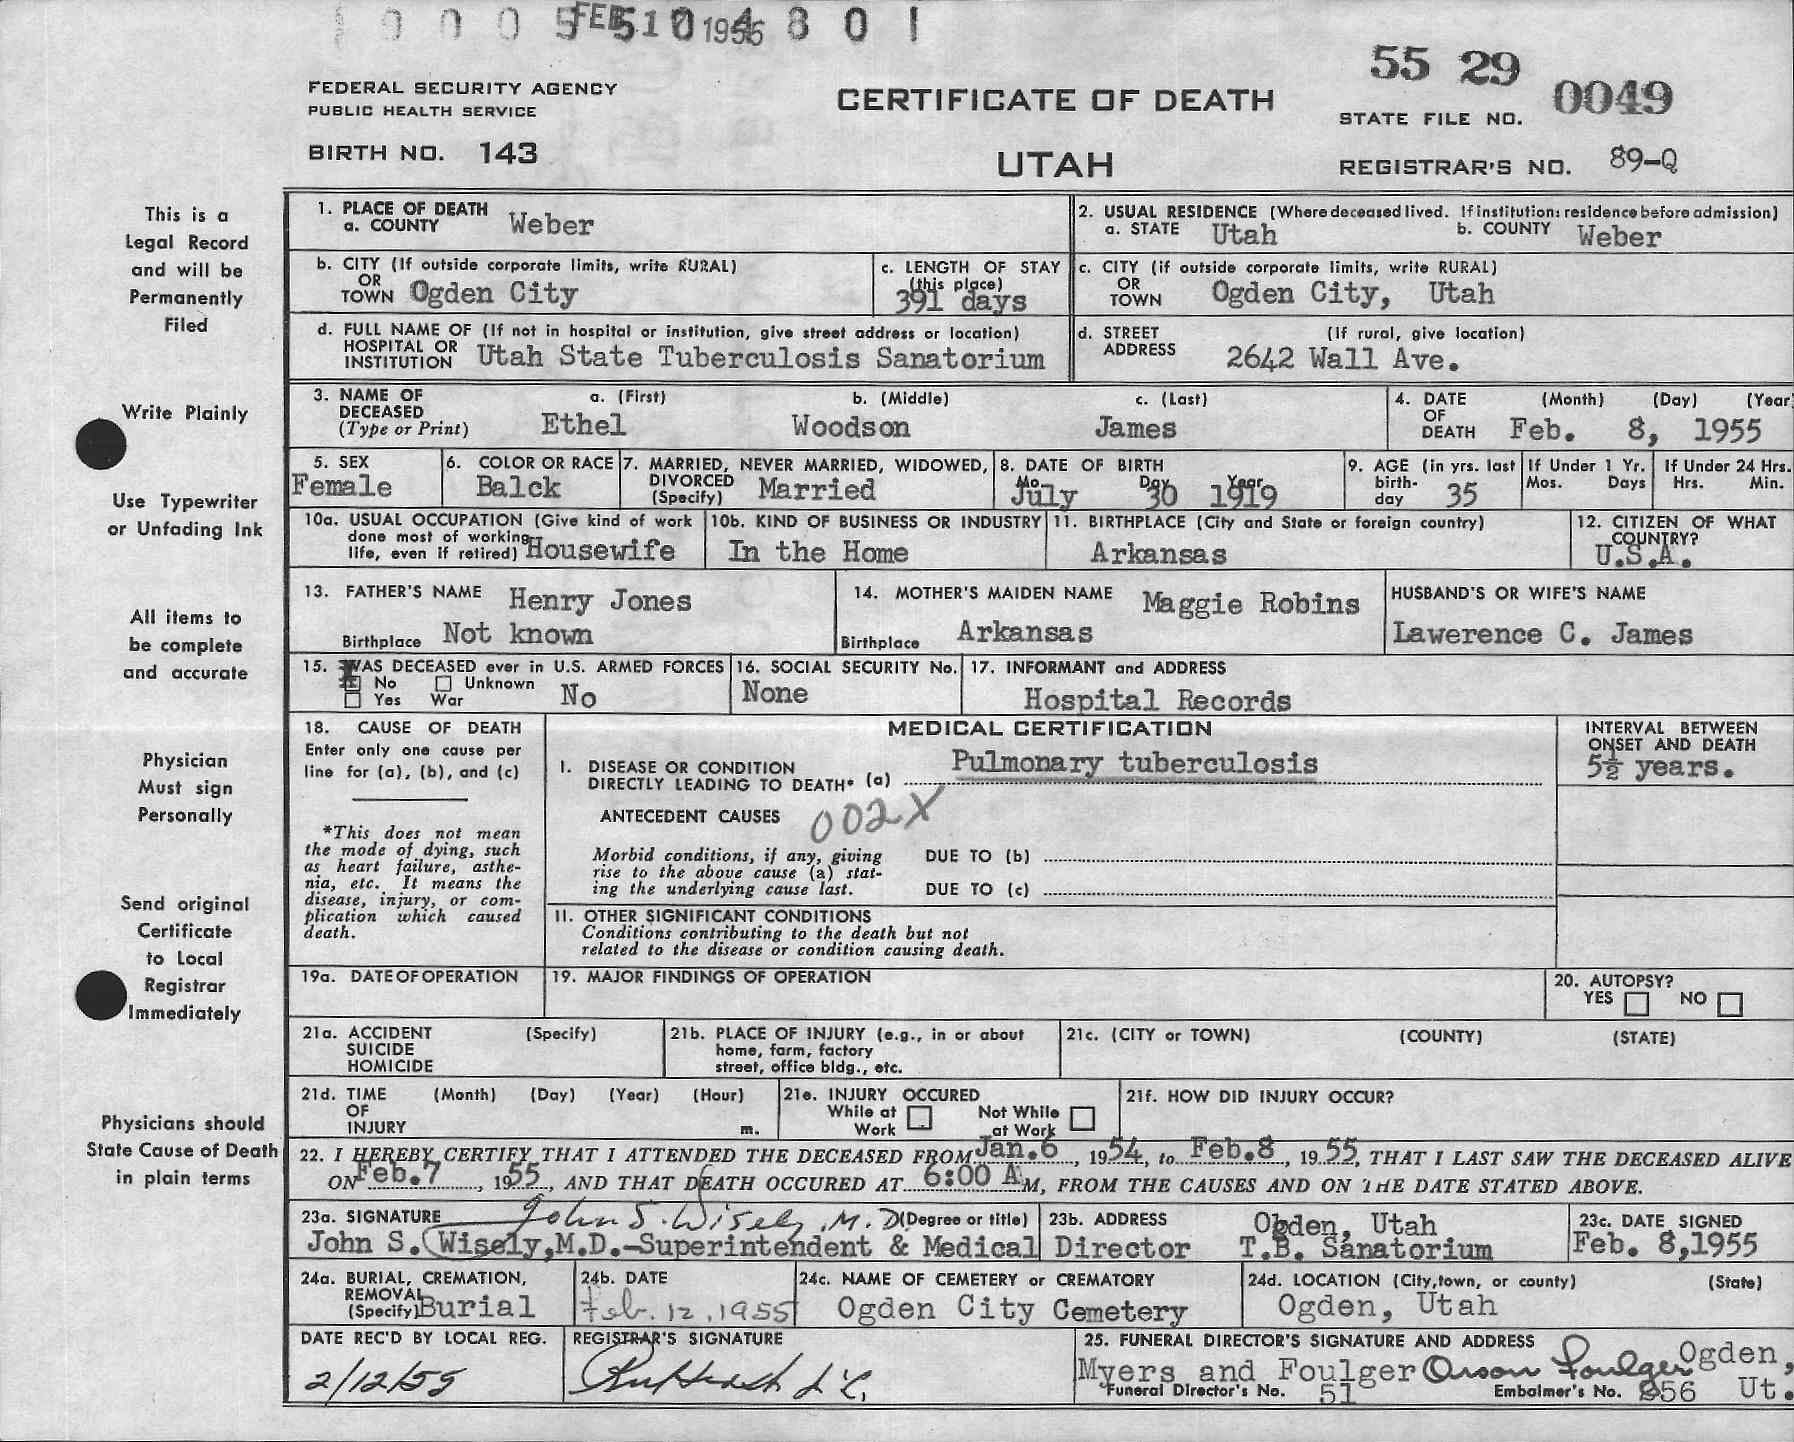 FEDERAL SECURITY AGENCY
PUBLIC HEALTH SERVICE
BIRTH NO. 143
CERTIFICATE OF DEATH
UTAH
55 29
STATE FILE NO. 0049
REGISTRAR'S NO. 89-Q
This is a
Legal Record
and will be
Permanently
Filed
Write Plainly
Use Typewriter
or Unfading Ink
All items to
be complete
and accurate
Physician
Must sign
Personally
Send original
Certificate
to Local
Registrar
Immediately
Physicians should
State Cause of Death
in plain terms
1. PLACE OF DEATH
a. COUNTY Weber
2. USUAL RESIDENCE (Where deceased lived. If institution: residence before admission)
a. STATE Utah b. COUNTY Weber
b. CITY (If outside corporate limits, write RURAL)
OR
TOWN Ogden City
c. LENGTH OF STAY
(this place)
391 days
c. CITY (if outside corporate limits, write RURAL)
OR
TOWN Ogden City, Utah
d. FULL NAME OF (If not in hospital or institution, give street address or location)
HOSPITAL OR
INSTITUTION Utah State Tuberculosis Sanatorium
d. STREET (If rural, give location)
ADDRESS 2642 Wall Ave.
3. NAME OF a. (First) b. (Middle) c. (Last)
DECEASED
(Type or Print) Ethel Woodson James
4. DATE (Month) (Day) (Year
OF
DEATH Feb. 8, 1955
5. SEX
Female
6. COLOR OR RACE
Balck
7. MARRIED, NEVER MARRIED, WIDOWED,
DIVORCED
(Specify) Married
8. DATE OF BIRTH
Mo. Day Year
July 30 1919
9. AGE (in yrs. last
birth-
day 35
If Under 1 Yr.
Mos. Days
If Under 24 Hrs.
Hrs. Min.
10a. USUAL OCCUPATION (Give kind of work
done most of working
life, even if retired) Housewife
10b. KIND OF BUSINESS OR INDUSTRY
In the Home
11. BIRTHPLACE (City and State or foreign country)
Arkansas
12. CITIZEN OF WHAT
COUNTRY?
U.S.A.
13. FATHER'S NAME Henry Jones
Birthplace Not known
14. MOTHER'S MAIDEN NAME Maggie Robins
Birthplace Arkansas
HUSBAND'S OR WIFE'S NAME
Lawerence C. James
15. WAS DECEASED ever in U.S. ARMED FORCES
No Unknown
Yes War No
16. SOCIAL SECURITY No.
None
17. INFORMANT and ADDRESS
Hospital Records
18. CAUSE OF DEATH
Enter only one cause per
line for (a), (b), and (c)
*This does not mean
the mode of dying, such
as heart failure, asthe-
nia, etc. It means the
disease, injury, or com-
plication which caused
death.
MEDICAL CERTIFICATION
I. DISEASE OR CONDITION
DIRECTLY LEADING TO DEATH* (a) Pulmonary tuberculosis
ANTECEDENT CAUSES 002X
Morbid conditions, if any, giving
rise to the above cause (a) stat-
ing the underlying cause last.
DUE TO (b)
DUE TO (c)
II. OTHER SIGNIFICANT CONDITIONS
Conditions contributing to the death but not
related to the disease or condition causing death.
INTERVAL BETWEEN
ONSET AND DEATH
5½ years.
19a. DATE OF OPERATION
19. MAJOR FINDINGS OF OPERATION
20. AUTOPSY?
YES NO
21a. ACCIDENT (Specify)
SUICIDE
HOMICIDE
21b. PLACE OF INJURY (e.g., in or about
home, farm, factory
street, office bldg., etc.
21c. (CITY or TOWN) (COUNTY) (STATE)
21d. TIME (Month) (Day) (Year) (Hour)
OF
INJURY m.
21e. INJURY OCCURED
While at Not While
Work at Work
21f. HOW DID INJURY OCCUR?
22. I HEREBY CERTIFY THAT I ATTENDED THE DECEASED FROM Jan.6, 1954, to Feb.8, 1955, THAT I LAST SAW THE DECEASED ALIVE
ON Feb.7, 1955, AND THAT DEATH OCCURED AT 6:00 A M, FROM THE CAUSES AND ON THE DATE STATED ABOVE.
23a. SIGNATURE John S. Wisely, M.D (Degree or title)
John S. Wisely,M.D.-Superintendent & Medical Director
23b. ADDRESS
Ogden, Utah
T.B. Sanatorium
23c. DATE SIGNED
Feb. 8,1955
24a. BURIAL, CREMATION,
REMOVAL
(Specify) Burial
24b. DATE
Feb. 12, 1955
24c. NAME OF CEMETERY or CREMATORY
Ogden City Cemetery
24d. LOCATION (City, town, or county) (State)
Ogden, Utah
DATE REC'D BY LOCAL REG.
2/12/55
REGISTRAR'S SIGNATURE
25. FUNERAL DIRECTOR'S SIGNATURE AND ADDRESS
Myers and Foulger Orson Foulger Ogden,
Funeral Director's No. 51 Embalmer's No. 856 Ut.